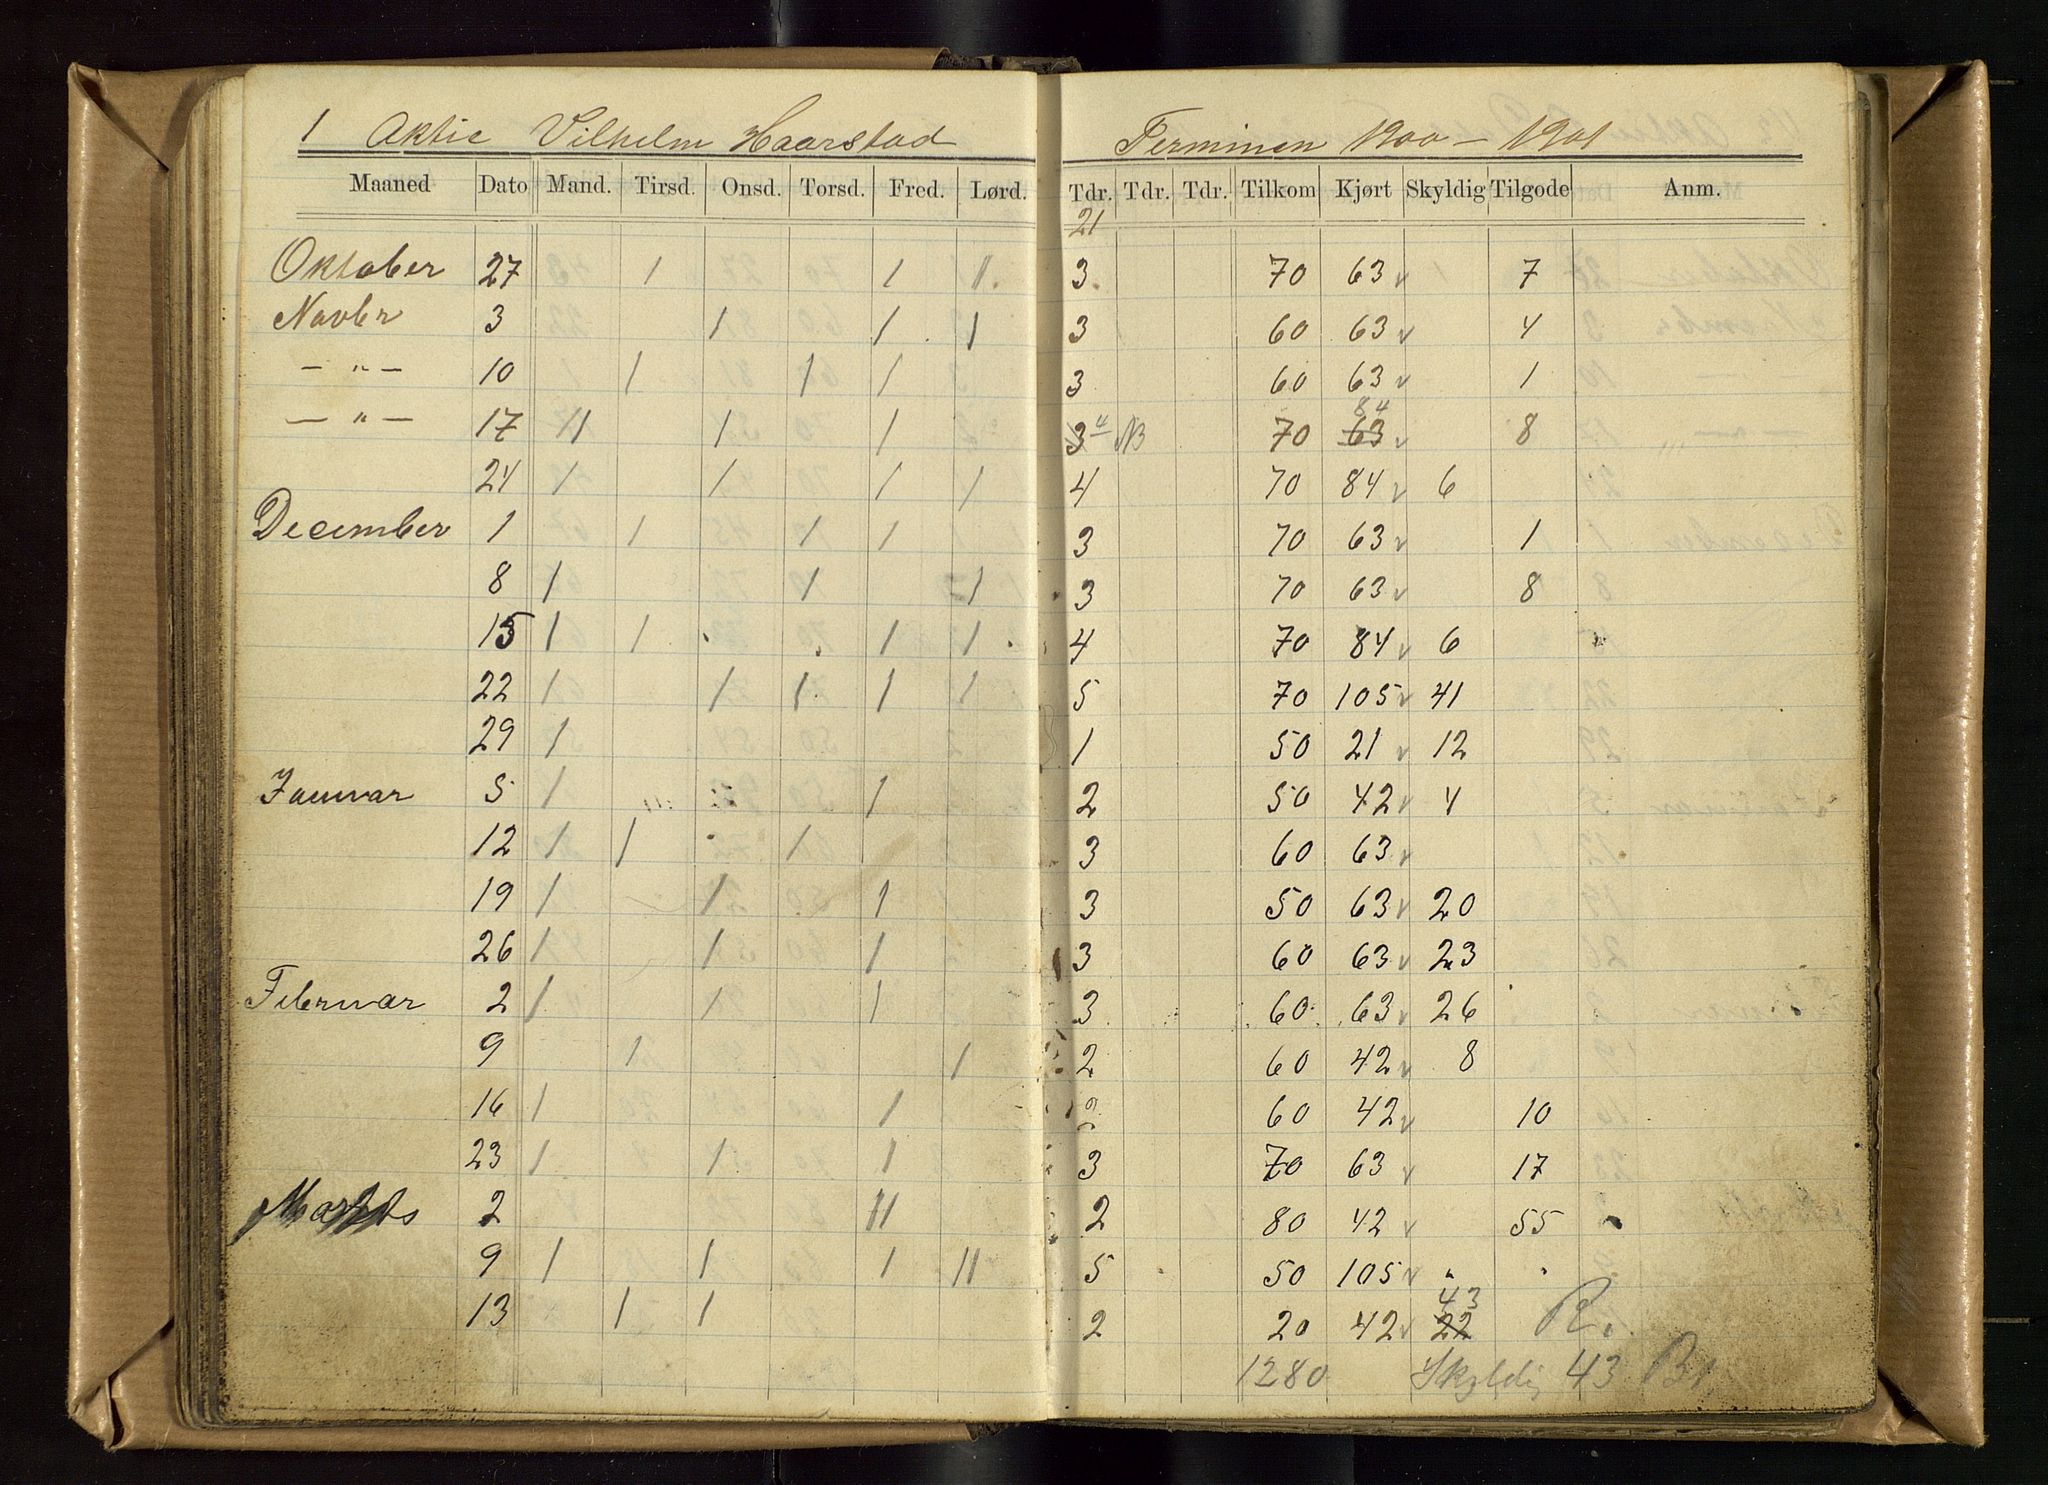 1 Aktie Vilhelm Haarstad Terminen 1900 - 1901
Maaned Dato Mand. Tirsd. Onsd. Torsd. Fred. Lørd. Tdr. Tdr. Tdr. Tilkom Kjørt Skyldig Tilgode Anm.
21
Oktober 27 1 1 11 3 70 63 v 7
Novbr 3 1 1 1 3 60 63 v 4
— " — 10 1 1 1 3 60 63 v 1
— " — 17 11 1 1 3 4 NB 70 63 84 v 8
24 1 1 1 1 4 70 84 v 6
December 1 1 1 1 3 70 63 v 1
8 1 1 1 3 70 63 v 8
15 1 1 1 1 4 70 84 v 6
22 1 1 1 1 1 5 70 105 v 41
29 1 1 50 21 v 12
Januar 5 1 1 2 50 42 v 4
12 1 1 1 3 60 63 v
19 1 1 1 3 50 63 v 20
26 1 1 1 3 60 63 v 23
Februar 2 1 1 1 3 60 63 v 26
9 1 1 2 60 42 v 8
16 1 1 2 60 42 v 10
23 1 1 1 3 70 63 v 17
Marts 2 11 2 80 42 v 55
9 1 1 1 11 5 50 105 v
13 1 1 2 20 42 v 22 43 R.
1280 Skyldig 43 Br.